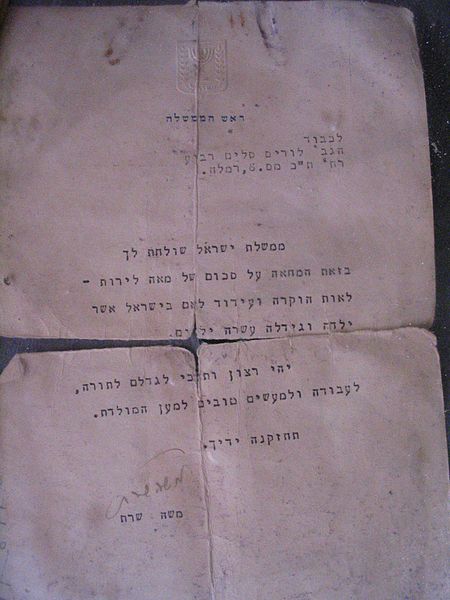 ראש הממשלה
לכבוד
הגב' לורים סלים רביע
רח' ת"כ מס. 6, רמלה.
ממשלת ישראל שולחת לך
בזאת המחאה על סכום של מאה לירות -
לאות הוקרה ועידוד לאם בישראל אשר
ילדה וגידלה עשרה ילדים.
יהי רצון ותזכי לגדלם לתורה,
לעבודה ולמעשים טובים למען המולדת.
תחזקנה ידיך.
משה שרת
משה שרת